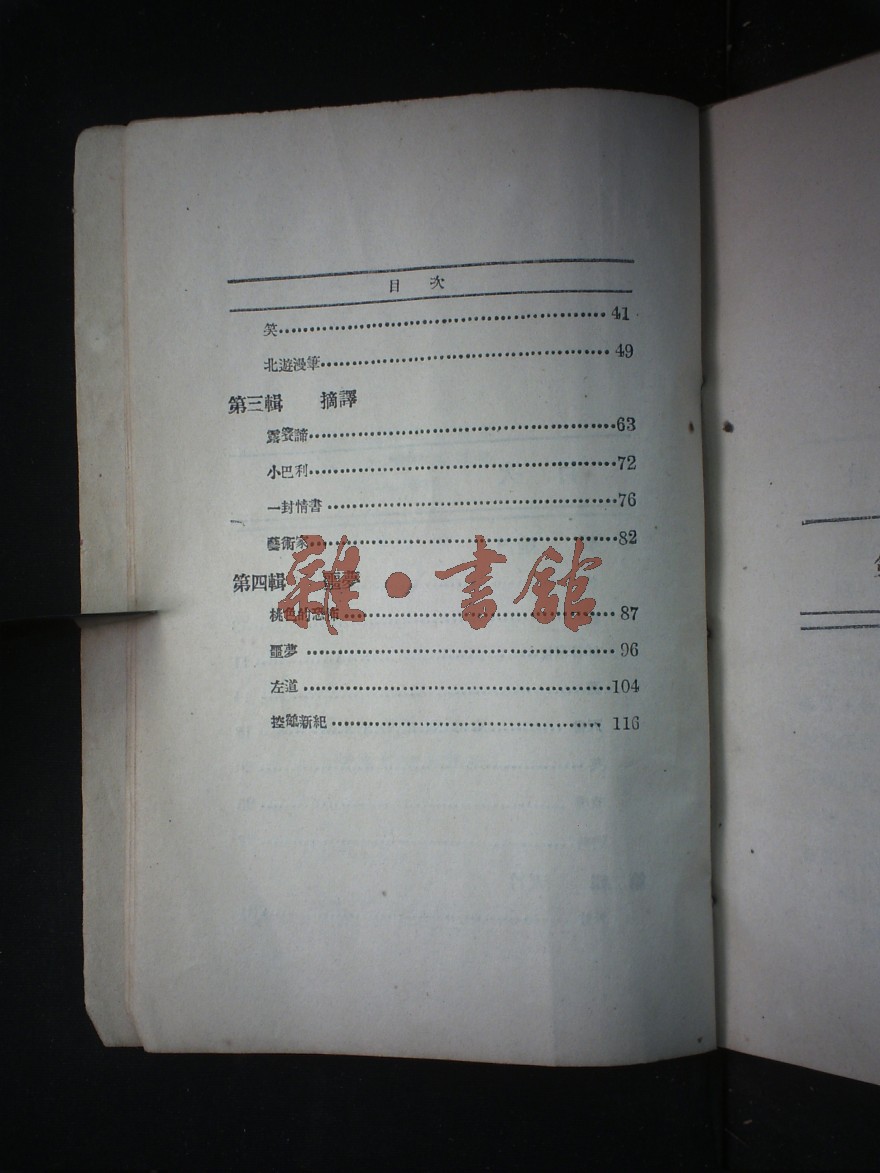 目次
笑 41
北遊漫筆 49
第三輯 摘譯
露婆諦 63
小巴利 72
一封情書 76
藝術家 82
第四輯 噩夢
桃色的恐怖 87
噩夢 96
左道 104
控鶴新紀 116
雜·書館